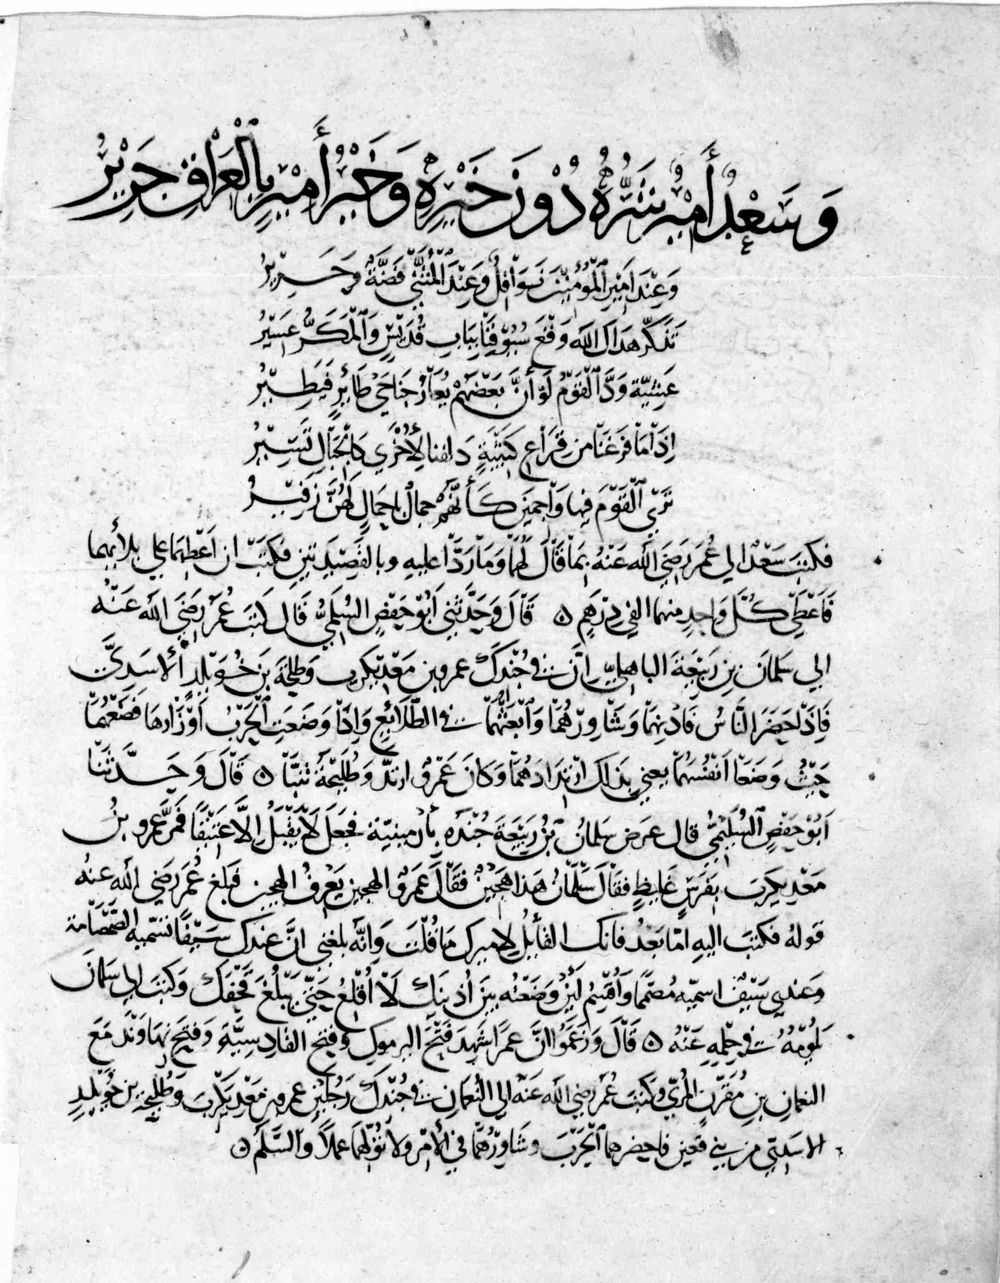 وَسَعْدٌ أَمِيرٌ شَرُّهُ دُوْنَ خَيْرِهِ وَخَيْرُ أَمِيرٍ بِالْعِرَاقِ جَرِيْرُ
وَعِنْدَ امَيْرِ الْمُؤْمِنِيْنَ نَوَافِلٌ وَعِنْدَ الْمُثَنَّى فِضَّةٌ وَحَرِيْرُ
تَذَكَّرْ هَدَاكَ اللّٰهُ وَقْعَ سُيُوْفِنَا بِبَابِ قُدَيْسٍ وَالْمَكَرُّ عَسِيْرُ
عَشِيَّةَ وَدَّ الْقَوْمُ لَوْ أَنَّ بَعْضَهُمْ يُعَارُ جَنَاحَيْ طَائِرٍ فَيَطِيْرُ
اِذَا مَا فَرَغْنَا مِن قِرَاعِ كَتِيْبَةٍ دلفنا لِأُخْرَى كَالْجِبَالِ تَسِيْرُ
تَرَى الْقَوْمَ فِيهَا وَاجِمِيْنَ كَأَنَّهُمْ جمال باحمالٍ لَهُنَّ زَفِيْرُ
فكتبَ سَعْدٌ الي عُمَر رَضِيَ اللّٰه عَنْهُ بِمَا قَالَ لَهُمَا وَمَا رَدَّا عليهِ وبالقَصِيْدتينِ فكتَبَ ان اَعْطِهِمَا علي بلائهما
فَاَعْطَى كُلَّ وَاحِدٍ منهما الفي دِرْهَمٍ ۝ قَالَ وَحَدَّثَنِي أَبُوْ حَفْصٍ السُّلَمِيُّ قَالَ كَتَبَ عُمَرُ رَضِيَ اللّٰه عَنْهُ
الي سَلمَانَ بنِ رَبِيْعَةَ الباهِلِيِّ انَّ في جُنْدِكَ عمرو بن مَعْدِيْكَرِبَ وَطلحَةَ بَنَ خُوَيْلِدٍ الاسَدِيَّ
فَاِذَا حَضَرَ النَّاسُ فَادْنِهِمَا وَشَاوِرْهُمَا وَابْعَثْهُمَا في الطَّلَائِعِ وَاِذَا وَضَعَتِ الْحَرْبُ اَوْزَارَهَا فَضَعْهُمَا
حَيْثُ وَضَعَا اَنْفُسَهُمَا يعني بذلك ارْتِدَادَهُمَا وَكَانَ عَمْرٌو ارتدَّ وَطُلَيْحَةُ تَنَبَّا ۝ قَالَ وَحَدَّثَنَا
اَبُوْ حَفْصٍ السُّلَمِيُّ قال عرَضَ سَلمانُ بْنُ رَبِيْعَةَ جُنْدَهُ بأرمينيّة فجعَل لَا يَقْبَلُ اِلَّا عَتِيْقًا فَمَرَّ عَمرو بنُ
مَعْدِيكَرِبَ بفَرَسٍ غَلِيظٍ فقَالَ سَلْمَانُ هَذا هَجِيْنٌ فقَالَ عَمْرٌو الهجين يَعْرِفُ الهجين فبلغَ عُمَرَ رَضِيَ اللّٰه عَنهُ
قولهُ فكتبَ اليهِ امّا بَعْدُ فانك القَائِلُ لِامِيركَ مَا قُلْتَ وَانَّه بلغني انَّ عندَكَ سَيْفًا تسمّيه الصَّمْصَامَةَ
وَعندي سَيْفٌ اُسمّيه مُصَمِّمًا وَاُقْسِمُ لَئِنْ وَضَعْتُه بَيْنَ اُذُنَيكَ لَا اُقْلِعُ حَتّى يَبْلُغَ قحْفَكَ وَكتَبَ الي سَلمَان
يَلُومُهُ في حِلمِهِ عَنْهُ ۝ قَالَ وَزَعَمُوا انَّ عمرًا شَهِدَ فَتْحَ اليرموكِ وَفتحَ القَادِسِيَّةِ وَفتحَ نهاوَند مَعَ
النعمَانِ بنِ مُقَرِّنٍ المُزَنيّ وكتَبَ عُمَر رَضِيَ اللّٰه عَنْه الي النُّعْمَانِ ان في جُنْدِكَ رَجُلَيْنِ عمرو بن مَعْدِيْكَرِبَ وَطُلَيْحَةَ بن خُوَيْلِدٍ
الاسَدِيَّ من بني قعين فاحضِرهُمَا الْحَرْبَ وَشَاوِرْهُمَا فِي الأَمْرِ وَلا تُوَلِّهِمَا عملًا وَالسَّلَمُ ۝